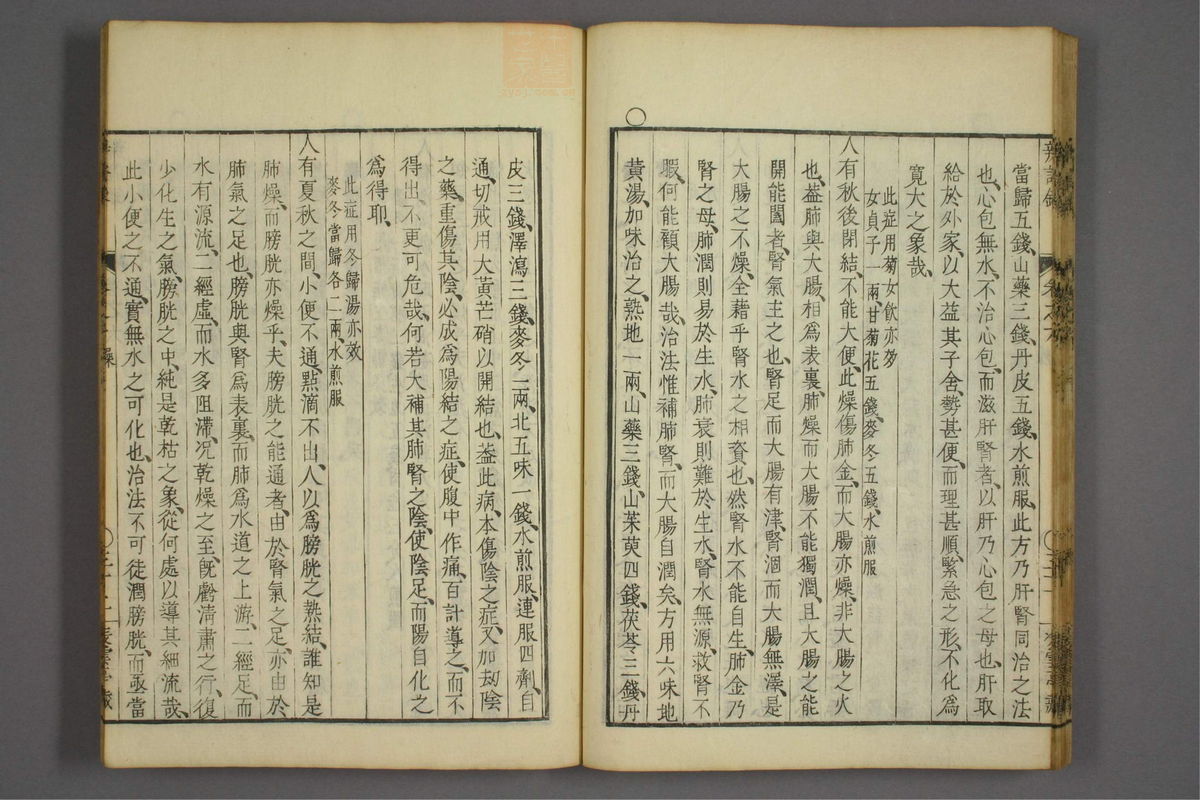 當歸五錢山藥三錢丹皮五錢水煎服此方乃肝腎同治之法
也心包無水不治心包而滋肝腎者以肝乃心包之母也肝取
給於外家以大益其子舍勢甚便而理甚順緊急之形不化爲
寛大之象哉
此症用菊女飲亦效
女貞子一兩甘菊花五錢麥冬五錢水煎服
人有秋後閉結不能大便此燥傷肺金而大腸亦燥非大腸之火
也蓋肺與大腸相爲表裏肺燥而大腸不能獨潤且大腸之能
開能闔者腎氣主之也腎足而大腸有津腎涸而大腸無澤是
大腸之不燥全藉乎腎水之相資也然腎水不能自生肺金乃
腎之母肺潤則易於生水肺衰則難於生水腎水無源救腎不
暇何能顧大腸哉治法惟補肺腎而大腸自潤矣方用六味地
黃湯加味治之熟地一兩山藥三錢山茱萸四錢茯苓三錢丹
皮三錢澤瀉三錢麥冬一兩北五味一錢水煎服連服四劑自
通切戒用大黃芒硝以開結也蓋此病本傷陰之症又加刼陰
之藥重傷其陰必成爲陽結之症使腹中作痛百計導之而不
得出不更可危哉何若大補其肺腎之陰使陰足而陽自化之
爲得耶
此症用冬歸湯亦效
麥冬當歸各二兩水煎服
人有夏秋之間小便不通點滴不出人以爲膀胱之熱結誰知是
肺燥而膀胱亦燥乎夫膀胱之能通者由於腎氣之足亦由於
肺氣之足也膀胱與腎爲表裏而肺爲水道之上游二經足而
水有源流二經虛而水多阻滯况乾燥之至既虧淸肅之行復
少化生之氣膀胱之中純是乾枯之象從何處以導其細流哉
此小便之不通實無水之可化也治法不可徒潤膀胱而亟當